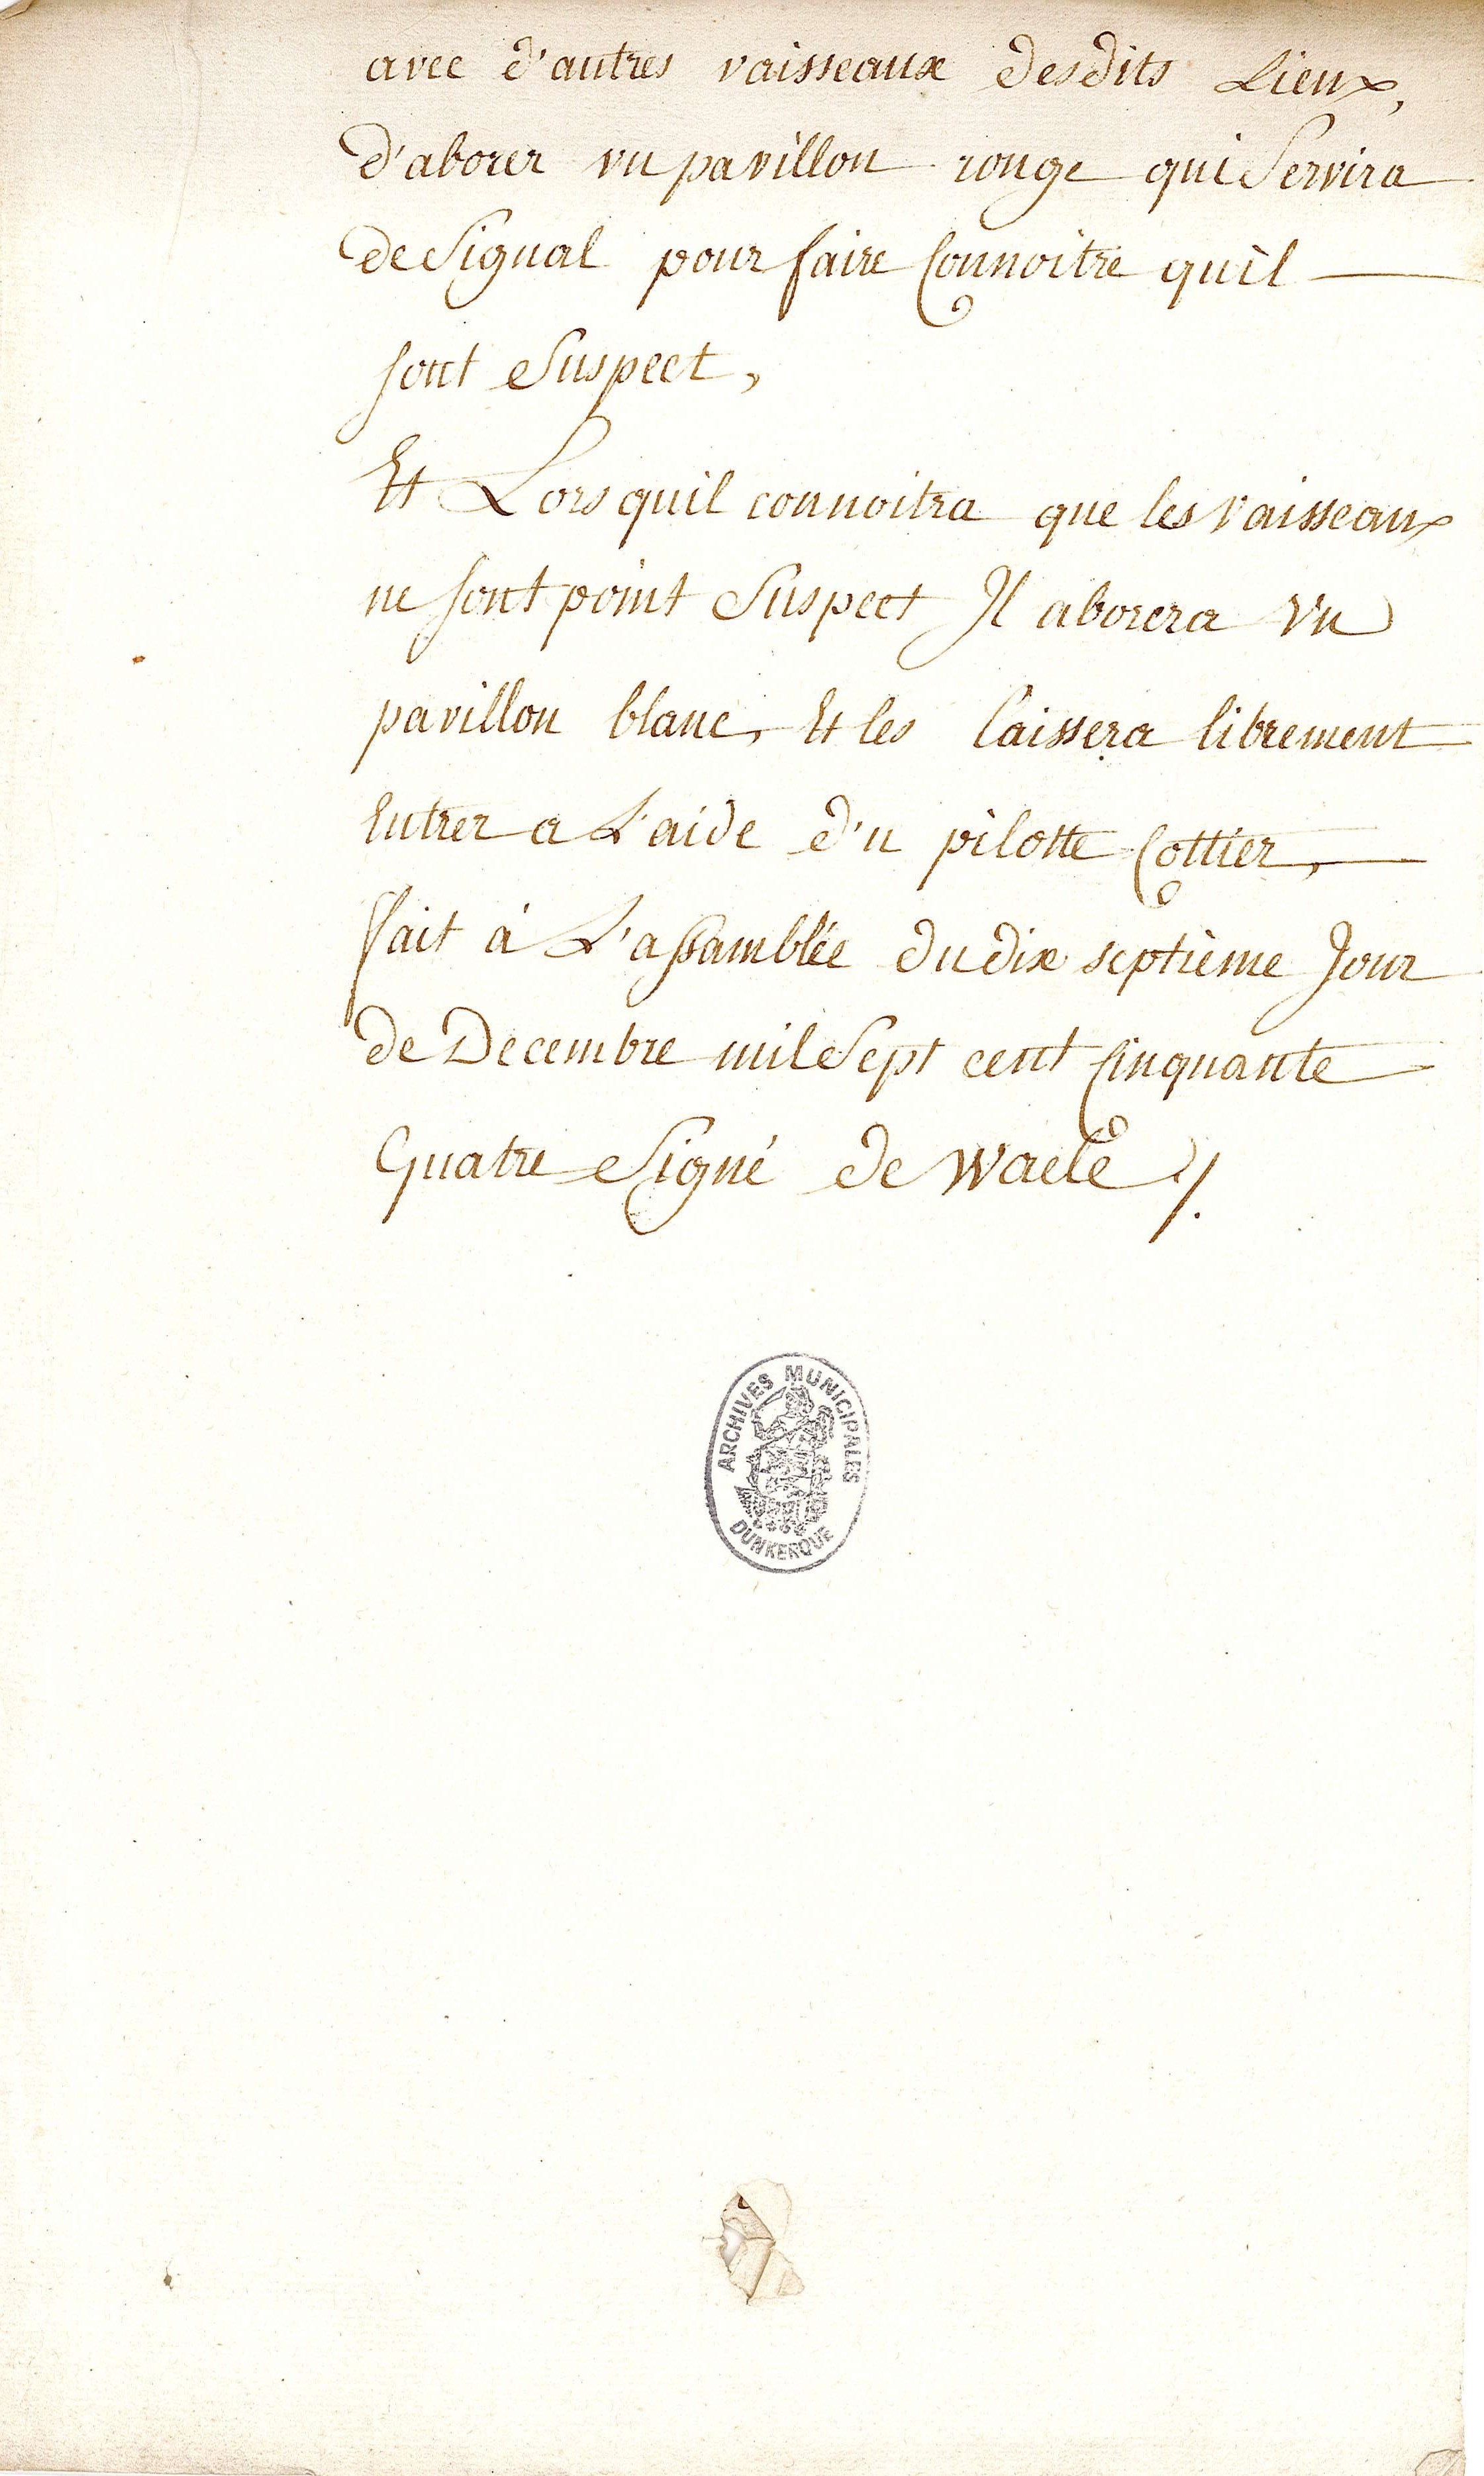 avec d'autres vaisseaux desdits Lieux,
d'aborer vn pavillon rouge qui Servira
de Signal pour faire Connoitre quil
sont Suspect,
Et Lors quil connoitra que les vaisseaux
ne sont point Suspect Il aborera vn
pavillon blanc, Et les laissera librement
Entrer a L'aide d'u pilotte Cottier,
fait à L'assamblée du dix septième Jour
de Decembre mil Sept cent Cinquante
Quatre Signé de Waele ./.
ARCHIVES MUNICIPALES
DUNKERQUE